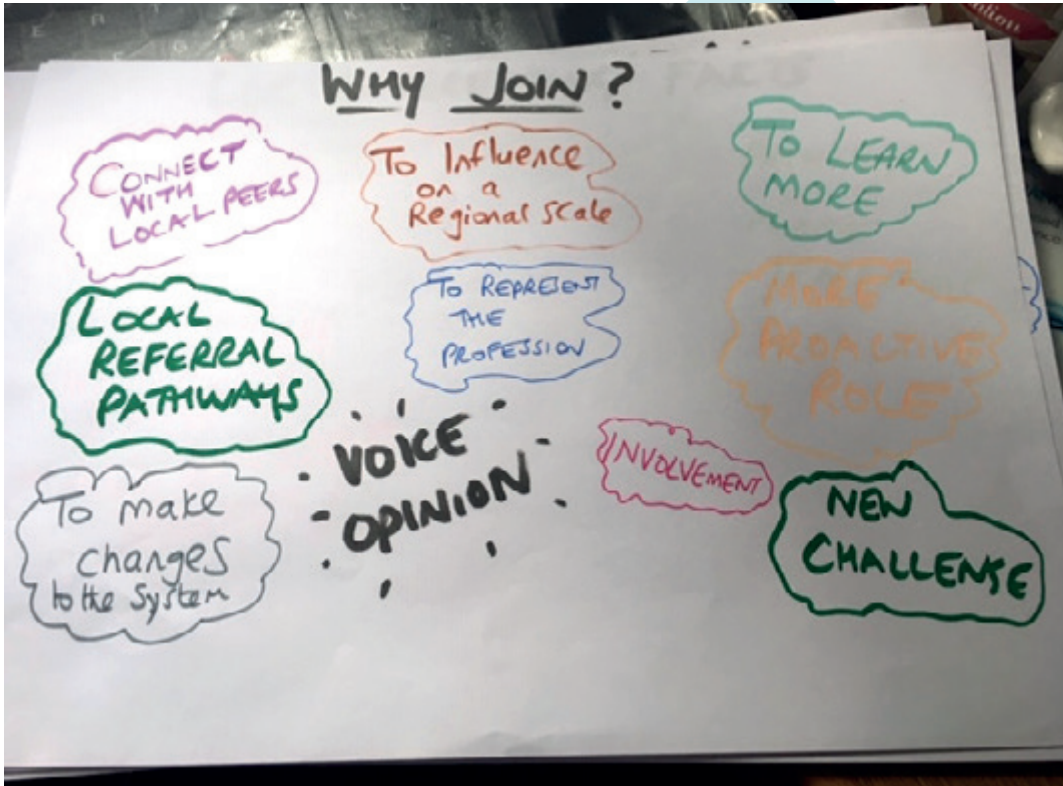 WHY JOIN?
CONNECT
WITH
LOCAL PEERS
To Influence
on a
Regional Scale
To LEARN
MORE
LOCAL
REFERRAL
PATHWAYS
To REPRESENT
THE
PROFESSION
MORE
PROACTIVE
ROLE
VOICE
OPINION
INVOLVEMENT
To make
changes
to the System
NEW
CHALLENGE